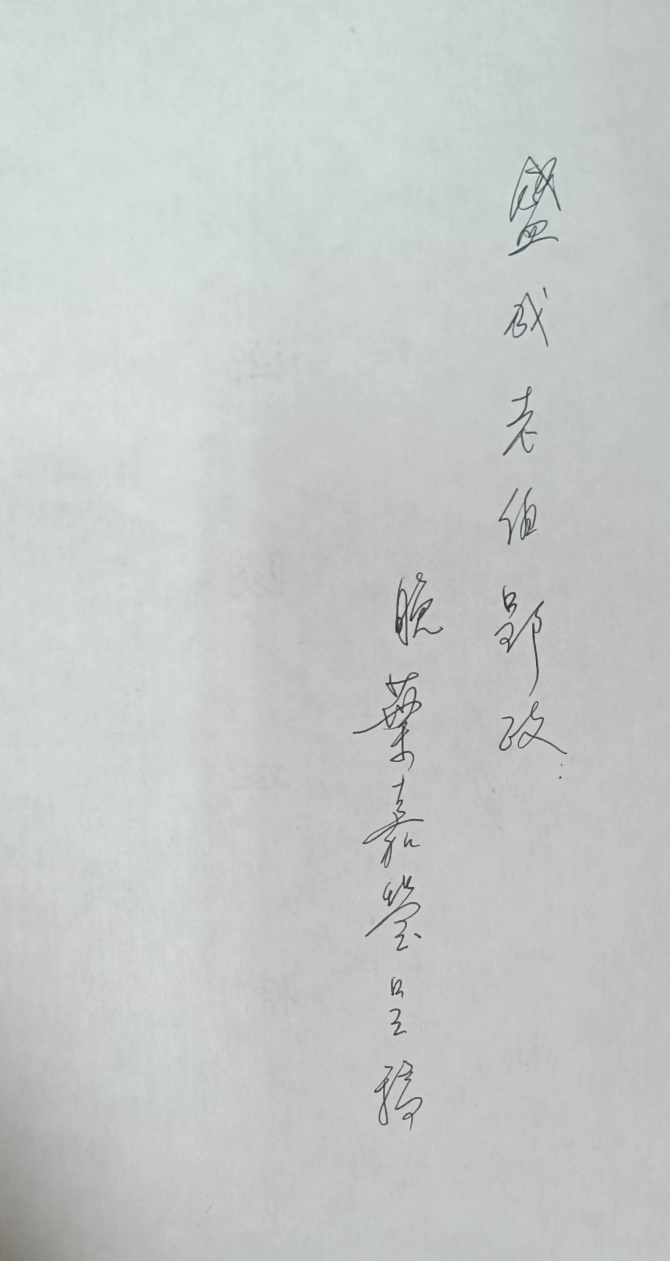 盛成老伯郢政:
晚葉嘉瑩呈稿